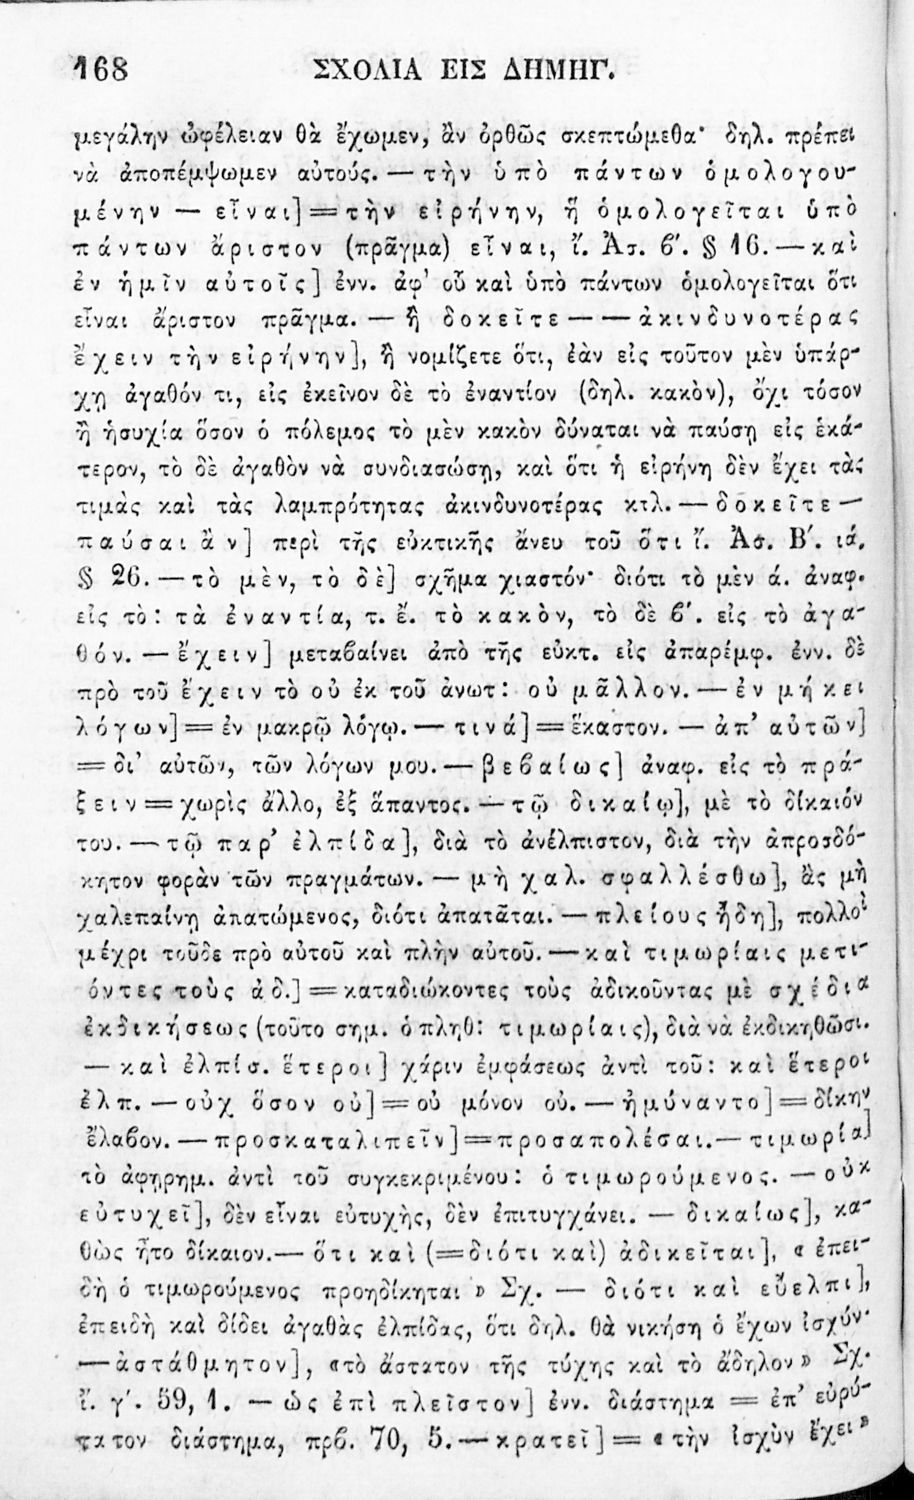 168 ΣΧΟΛΙΑ ΕΙΣ ΔΗΜΗΓ.
μεγάλην ὠφέλειαν θὰ ἔχωμεν, ἂν ὀρθῶς σκεπτώμεθα· δηλ. πρέπει
νὰ ἀποπέμψωμεν αὐτούς. — τὴν ὑπὸ πάντων ὁμολογου-
μένην — εἶναι] = τὴν εἰρήνην, ἥ ὁμολογεῖται ὑπὸ
πάντων ἄριστον (πρᾶγμα) εἶναι, ἴ. Ἀσ. ϐ'. § 16. — καὶ
ἐν ἡμῖν αὐτοῖς] ἐνν. ἀφ' οὗ καὶ ὑπὸ πάντων ὁμολογεῖται ὅτι
εἶναι ἄριστον πρᾶγμα. — ἢ δοκεῖτε — — ἀκινδυνοτέρας
ἔχειν τὴν εἰρήνην], ἢ νομίζετε ὅτι, ἐὰν εἰς τοῦτον μὲν ὑπάρ-
χῃ ἀγαθόν τι, εἰς ἐκεῖνον δὲ τὸ ἐναντίον (δηλ. κακὸν), ὄχι τόσον
ἢ ἡσυχία ὅσον ὁ πόλεμος τὸ μὲν κακὸν δύναται νὰ παύσῃ εἰς ἑκά-
τερον, τὸ δὲ ἀγαθὸν νὰ συνδιασώσῃ, καὶ ὅτι ἡ εἰρήνη δὲν ἔχει τὰς
τιμὰς καὶ τὰς λαμπρότητας ἀκινδυνοτέρας κτλ. — δοκεῖτε —
παύσαι ἂν] περὶ τῆς εὐκτικῆς ἄνευ τοῦ ὅτι ἴ. Ἀσ. Β'. ιά.
§ 26. — τὸ μὲν, τὸ δὲ] σχῆμα χιαστόν· διότι τὸ μὲν ά. ἀναφ.
εἰς τὸ: τὰ ἐναντία, τ. ἔ. τὸ κακὸν, τὸ δὲ ϐ'. εἰς τὸ ἀγα-
θόν. — ἔχειν] μεταϐαίνει ἀπὸ τῆς εὐκτ. εἰς ἀπαρέμφ. ἐνν. δὲ
πρὸ τοῦ ἔχειν τὸ οὐ ἐκ τοῦ ἀνωτ: οὐ μᾶλλον. — ἐν μήκει
λόγων] = ἐν μακρῷ λόγῳ. — τινά] = ἕκαστον. — ἀπ' αὐτῶν]
= δι' αὐτῶν, τῶν λόγων μου. — βεϐαίως] ἀναφ. εἰς τὸ πρά-
ξειν = χωρὶς ἄλλο, ἐξ ἅπαντος. — τῷ δικαίῳ], μὲ τὸ δίκαιόν
του. — τῷ παρ' ἐλπίδα], διὰ τὸ ἀνέλπιστον, διὰ τὴν ἀπροσδό-
κητον φορὰν τῶν πραγμάτων. — μὴ χαλ. σφαλλέσθω], ἂς μὴ
χαλεπαίνῃ ἀπατώμενος, διότι ἀπατᾶται. — πλείους ἤδη], πολλοὶ
μέχρι τοῦδε πρὸ αὐτοῦ καὶ πλὴν αὐτοῦ. — καὶ τιμωρίαις μετι-
όντες τοὺς ἀδ.] = καταδιώκοντες τοὺς ἀδικοῦντας μὲ σχέδια
ἐκδικήσεως (τοῦτο σημ. ὁ πληθ: τιμωρίαις), διὰ νὰ ἐκδικηθῶσι.
— καὶ ἐλπίσ. ἕτεροι] χάριν ἐμφάσεως ἀντὶ τοῦ: καὶ ἕτεροι
ἐλπ. — οὐχ ὅσον οὐ] = οὐ μόνον οὐ. — ἠμύναντο] = δίκην
ἔλαϐον. — προσκαταλιπεῖν] = προσαπολέσαι. — τιμωρία]
τὸ ἀφῃρημ. ἀντὶ τοῦ συγκεκριμένου: ὁ τιμωρούμενος. — οὐκ
εὐτυχεῖ], δὲν εἶναι εὐτυχὴς, δὲν ἐπιτυγχάνει. — δικαίως], κα-
θὼς ἦτο δίκαιον. — ὅτι καὶ (= διότι καὶ) ἀδικεῖται], « ἐπει-
δὴ ὁ τιμωρούμενος προηδίκηται » Σχ. — διότι καὶ εὔελπι],
ἐπειδὴ καὶ δίδει ἀγαθὰς ἐλπίδας, ὅτι δηλ. θὰ νικήσῃ ὁ ἔχων ἰσχύν·
— ἀστάθμητον], «τὸ ἄστατον τῆς τύχης καὶ τὸ ἄδηλον» Σχ.
ἴ. γ'. 59, 1. — ὡς ἐπὶ πλεῖστον] ἐνν. διάστημα = ἐπ' εὐρύ-
τατον διάστημα, πρϐ. 70, 5. — κρατεῖ] = « τὴν ἰσχὺν ἔχει »